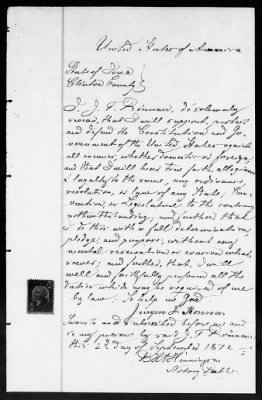 United States of America
State of Iowa
Clinton County
I, J. F. do solemnly
swear, that I will support, protect
and defend the Constitution and Gov-
ernment of the United States against
all enemies, whether domestic or foreign,
and that I will bear true faith, allegiance
& loyalty to the same, any ordinance,
resolution, or law of any State, Con-
vention, or Legislature to the contrary
notwithstanding; and further that
I do this with a full determination,
pledge, and purpose, without any
mental reservation or evasion what-
soever; and further, that I will
well and faithfully perform all the
duties which may be required of me
by law. So help me God
Sworn to and subscribed before me and
in my presence by said J. F.
this 12 day of September 1872
Notary Public